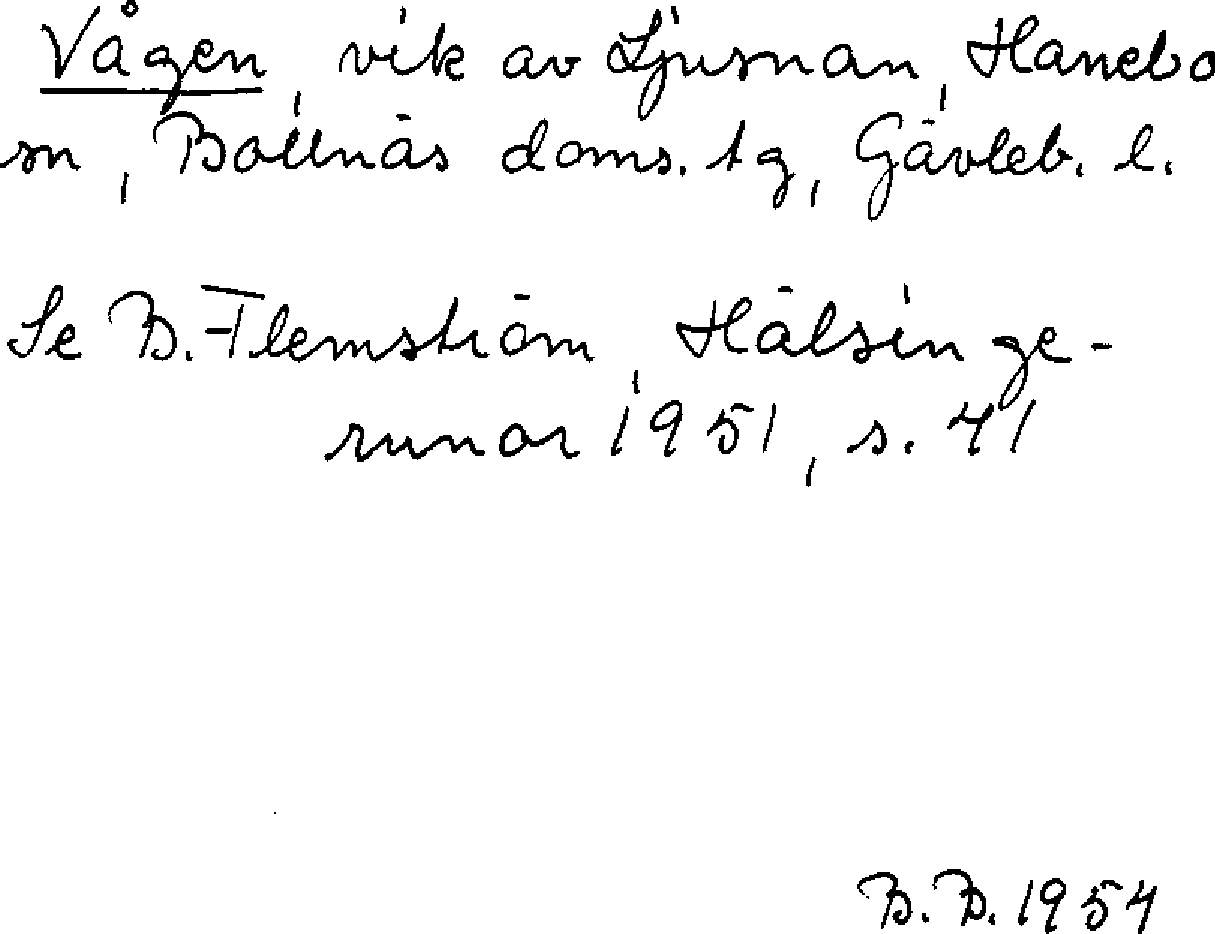 Vågen, vik av Ljusnan, Hanebo
sn, Bollnäs doms. tg, Gävleb. l.
Se B. Flemström, Hälsinge-
runor 1951, s. 41
B. B. 1954